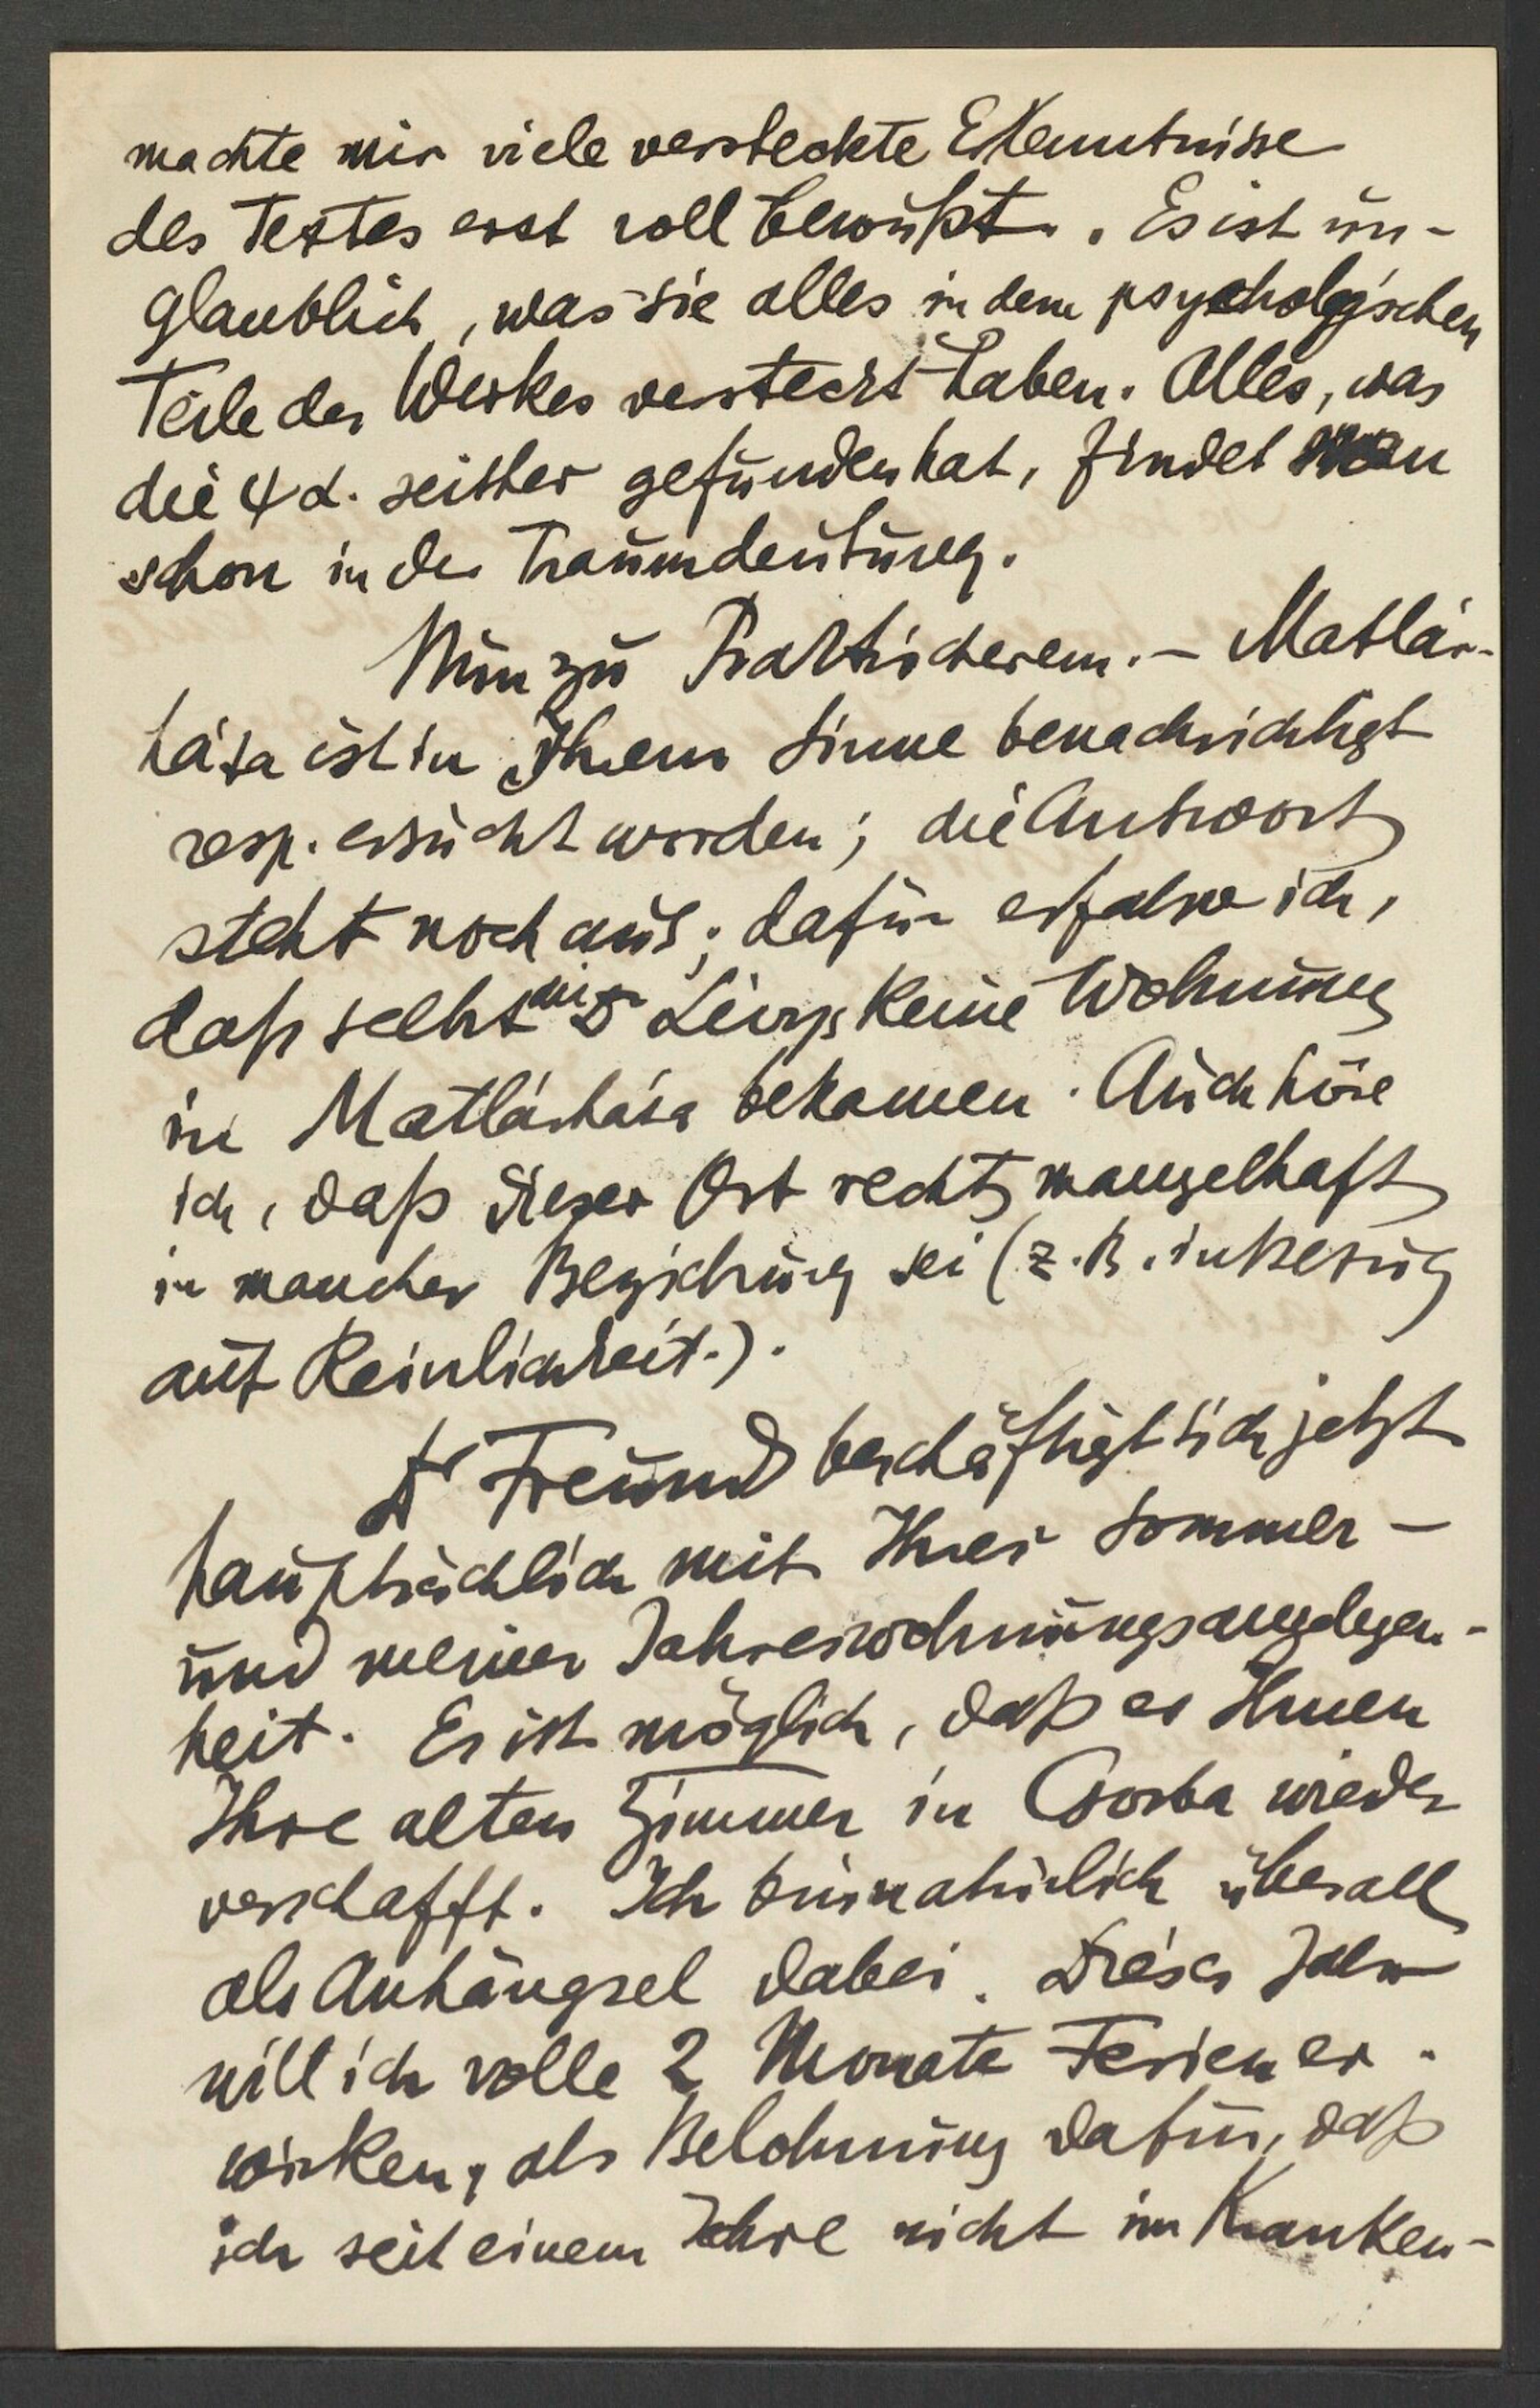 machte mir viele versteckte Erkenntnisse
des Textes erst voll bewußt. Es ist un-
glaublich, was Sie alles in dem psychologischen
Teile des Werkes versteckt haben. Alles, was
die ψα. seither gefunden hat, findet man
schon in der Traumdeutung.
Nun zu Praktischerem. – Matlár-
háza ist in Ihrem Sinne benachrichtigt
resp. ersucht worden; die Antwort
steht noch aus; dafür erfahre ich,
daß selbst die Dr Lévys keine Wohnung
in Matlárháza bekamen. Auch höre
ich, daß dieser Ort recht mangelhaft
in mancher Beziehung sei (z. B. in bezug
auf Reinlichkeit.).
Dr Freund beschäftigt sich jetzt
hauptsächlich mit Ihrer Sommer-
und meiner Jahreswohnungsangelegen-
heit. Es ist möglich, daß er Ihnen
Ihre alten Zimmer in Csorba wieder
verschafft. Ich bin natürlich überall
als Anhängsel dabei. Dieses Jahr
will ich volle 2 Monate Ferien er-
wirken, als Belohnung dafür, daß
ich seit einem Jahre nicht im Kranken-